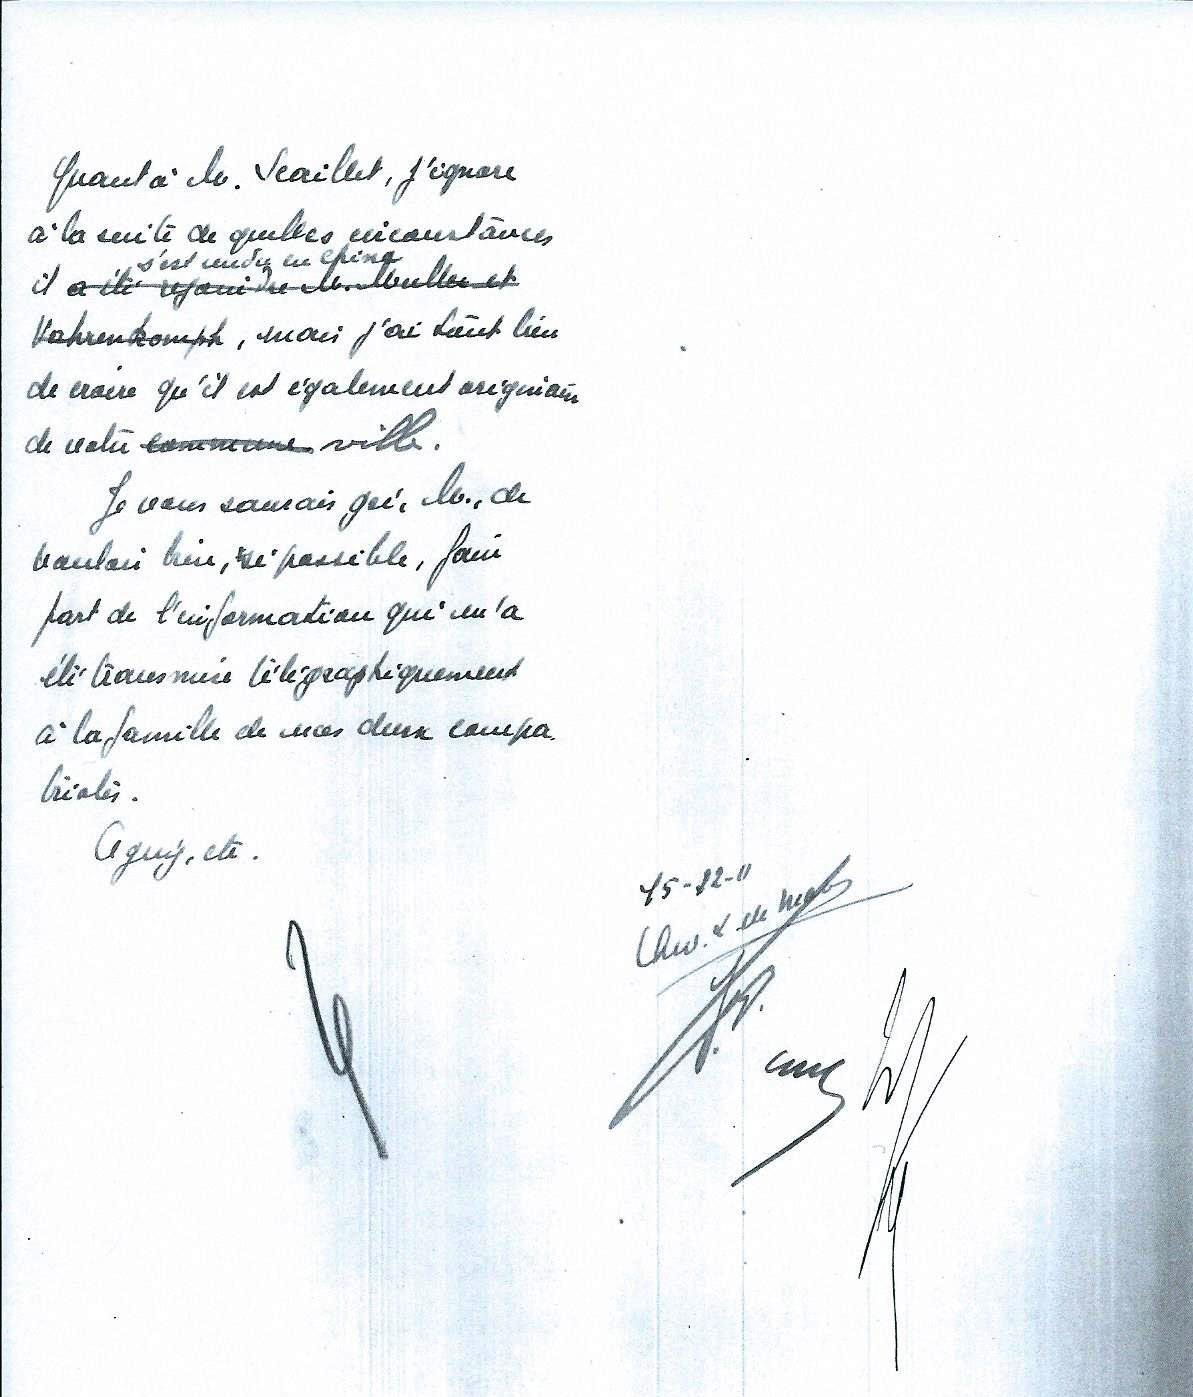 Quant à M. Scaillet, j'ignore
à la suite de quelles circonstances
s'est rendu en Chine
il a été rejoindre M. Muller et
Vahrenkomph, mais j'ai tout lieu
de croire qu'il est également originaire
de votre commune ville.
Je vous saurais gré, M., de
vouloir bien, si possible, faire
part de l'information qui m'a
été transmise télégraphiquement
à la famille de nos deux compa
triotes.
Agréez, etc.
15-12-11